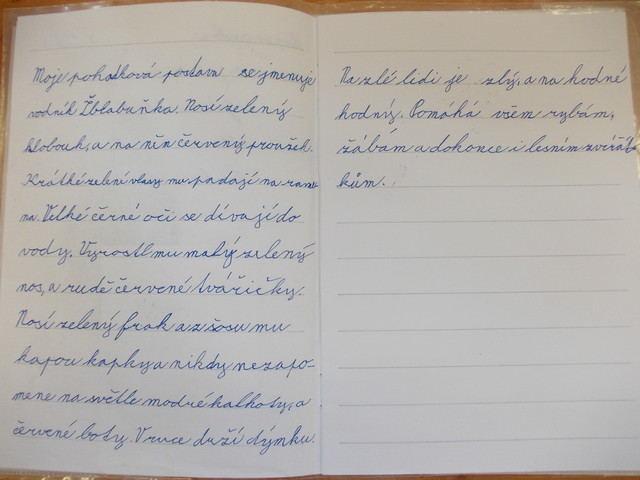 Moje pohatková postava se jmenuje
vodník Žblabuňka. Nosí zelený
klobouk, a na něn červený proužek.
Krátké zelené vlasy mu padají na rame-
na. Velké černé oči se dívají do
vody. Vyrostl mu malý zelený
nos, a rudě červené tvářičky.
Nosí zelený frak a z šosu mu
kapou kapky a nikdy nezapo-
mene na světle modré kalhoty, a
červené boty. V ruce drží dýmku.
Na zlé lidi je zlý, a na hodné
hodný. Pomáhá všem rybám,
žábám a dokonce i lesním zvířát-
kům.